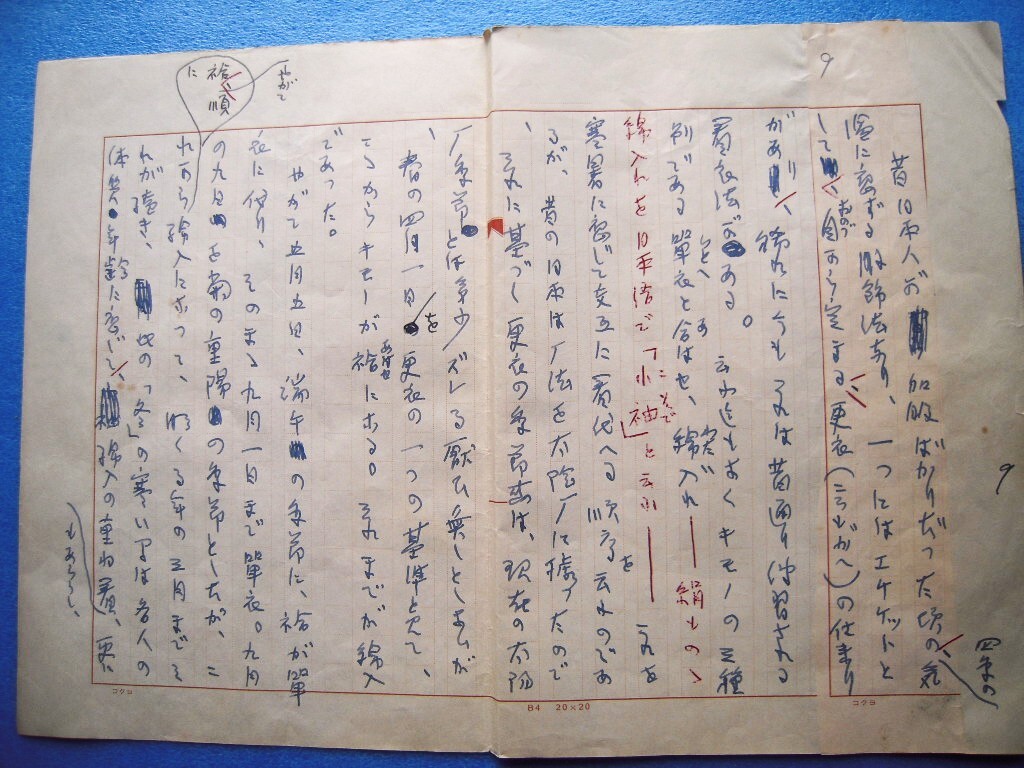 9
昔日本人が和服ばかりだった頃の気
四季の
温に応ずる服飾法あり、一つにはエケットと
して自から定まる更衣(ころもがへ)の仕来り
おのづ
があり、稀れに今もそれは昔通り伝習される
着衣法がある。云ふ迄もなくキモノの三種
別である単衣と合はせ、綿入れ――絹もの
ひとへ
綿入れを日本語で「小袖」と云ふ――これを
こそで
寒暑に応じて交互に着代へる順序を云ふのであ
るが、昔の日本は暦法を太陰暦に拠ったので
それに基づく更衣の季節は、現在の太陽
暦季節とは多少ズレる厭ひ無しとしないが
春の四月一日を更衣の一つの基準と見て、
ころからキモノが袷になる。それまでが綿入
あはせ
であった。
やがて五月五日、端午の季節に、袷が単
衣に代り、そのまゝ九月一日まで単衣。九月
の九日を菊の重陽の季節としたが、こ
れから綿入になって、明くる年の三月までそ
やがて
袷に順
れが続き、此の「冬」の寒い間は各人の
体質年齢に応じて、綿入の重ね着、
もあらう。
コクヨ
B4 20×20
コクヨ
9